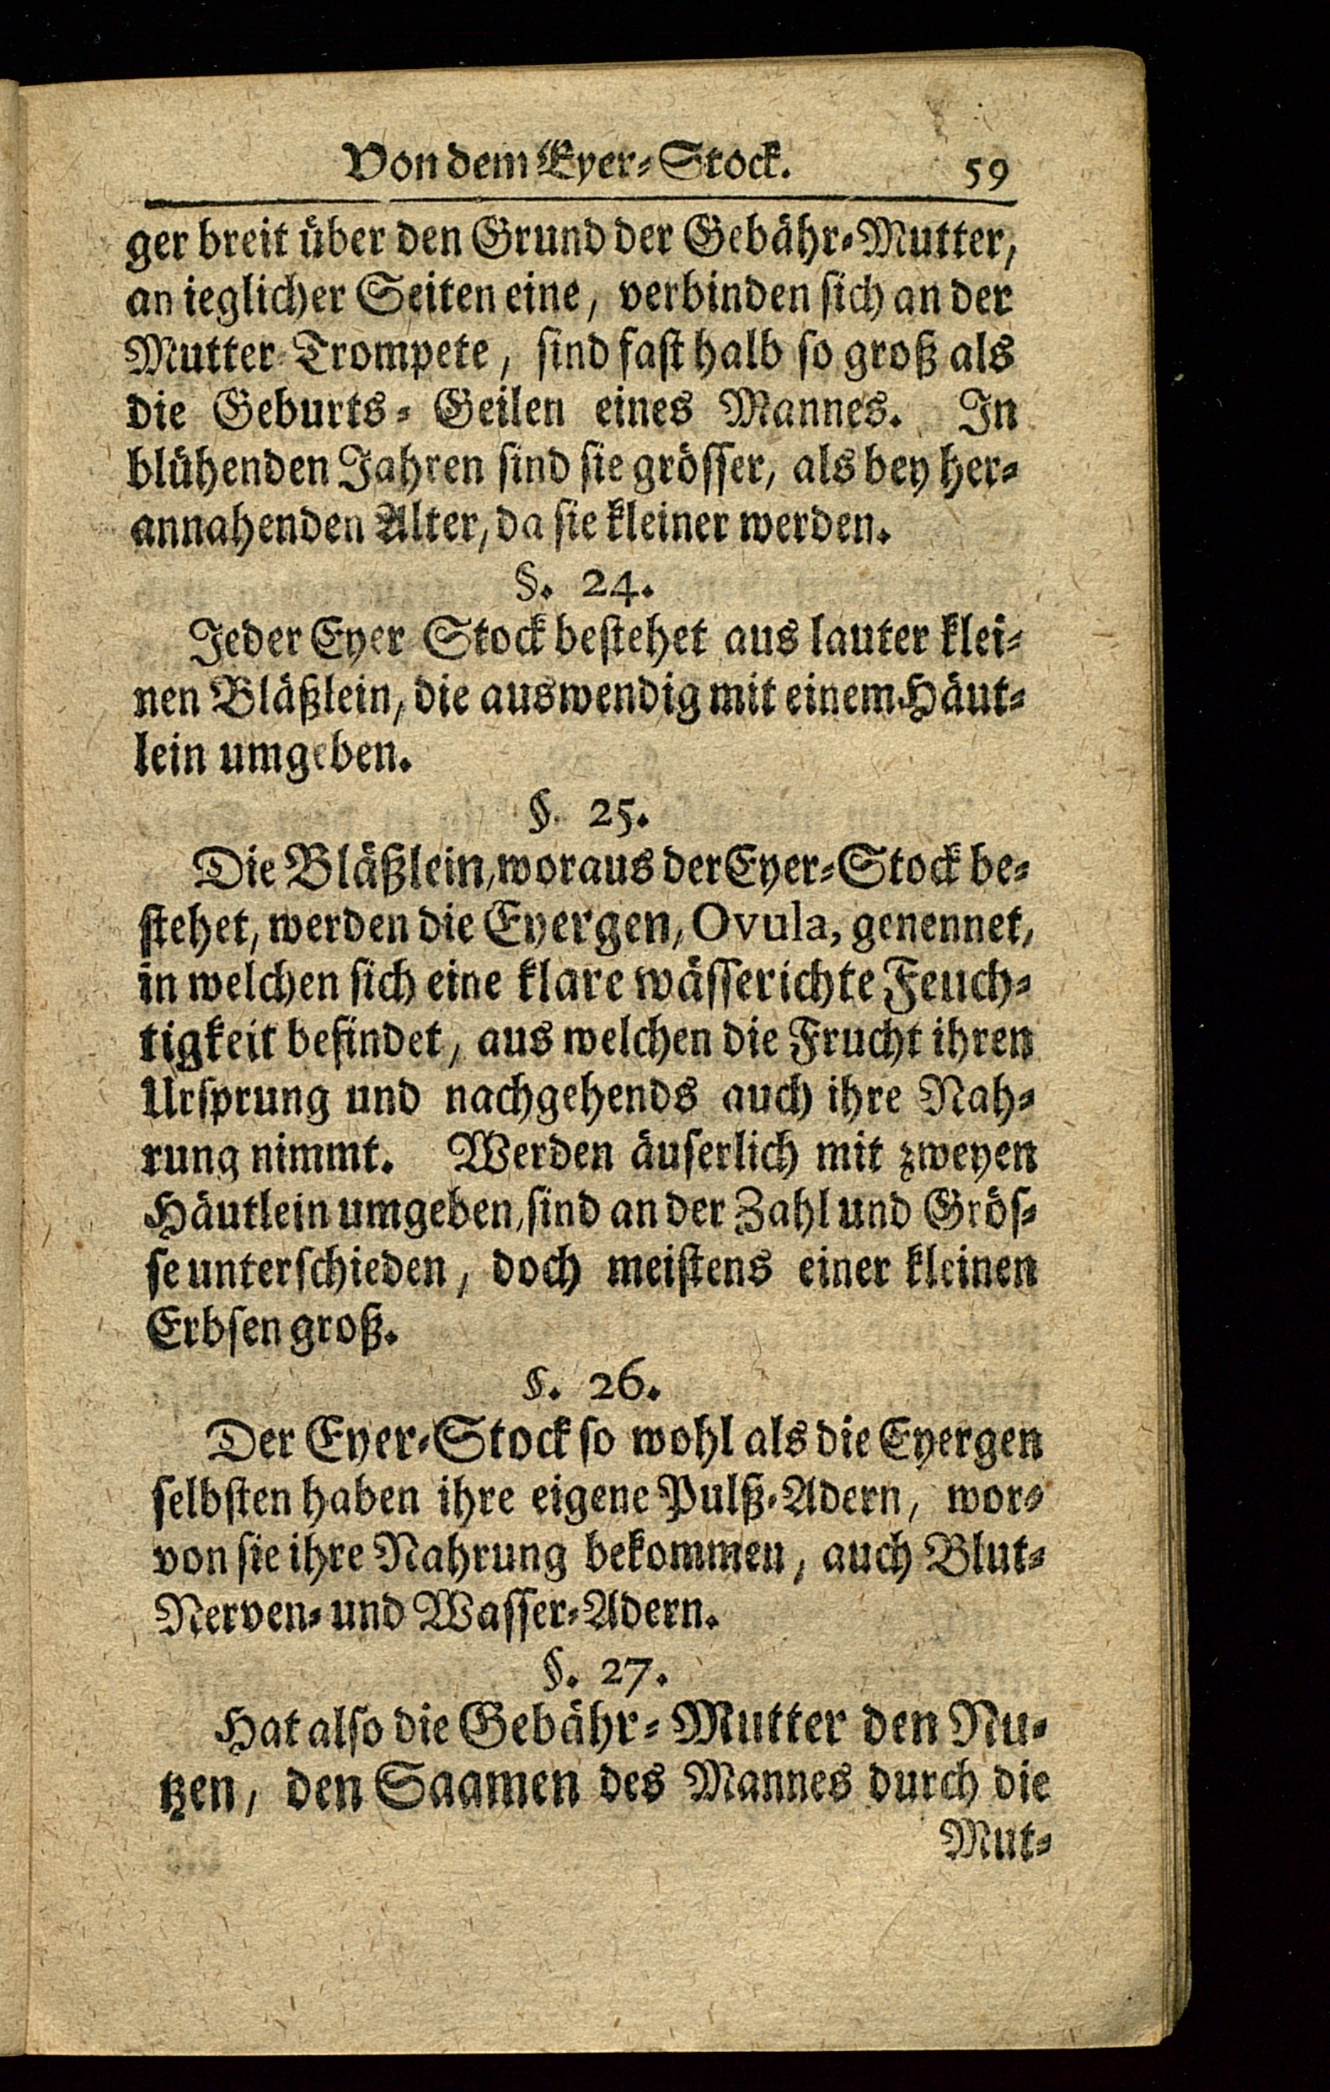 Von dem Eyer-Stock. 59
ger breit über den Grund der Gebähr-Mutter,
an ieglicher Seiten eine, verbinden sich an der
Mutter-Trompete, sind fast halb so groß als
die Geburts-Geilen eines Mannes. In
blühenden Jahren sind sie grösser, als bey her-
annahenden Alter, da sie kleiner werden.
§. 24.
Jeder Eyer Stock bestehet aus lauter klei-
nen Bläßlein, die auswendig mit einem Häut-
lein umgeben.
§. 25.
Die Bläßlein, woraus der Eyer-Stock be-
stehet, werden die Eyergen, Ovula, genennet,
in welchen sich eine klare wässerichte Feuch-
tigkeit befindet, aus welchen die Frucht ihren
Ursprung und nachgehends auch ihre Nah-
rung nimmt. Werden äuserlich mit zweyen
Häutlein umgeben, sind an der Zahl und Grös-
se unterschieden, doch meistens einer kleinen
Erbsen groß.
§. 26.
Der Eyer-Stock so wohl als die Eyergen
selbsten haben ihre eigene Pulß-Adern, wor-
von sie ihre Nahrung bekommen, auch Blut-
Nerven- und Wasser-Adern.
§. 27.
Hat also die Gebähr-Mutter den Nu-
tzen, den Saamen des Mannes durch die
Mut-